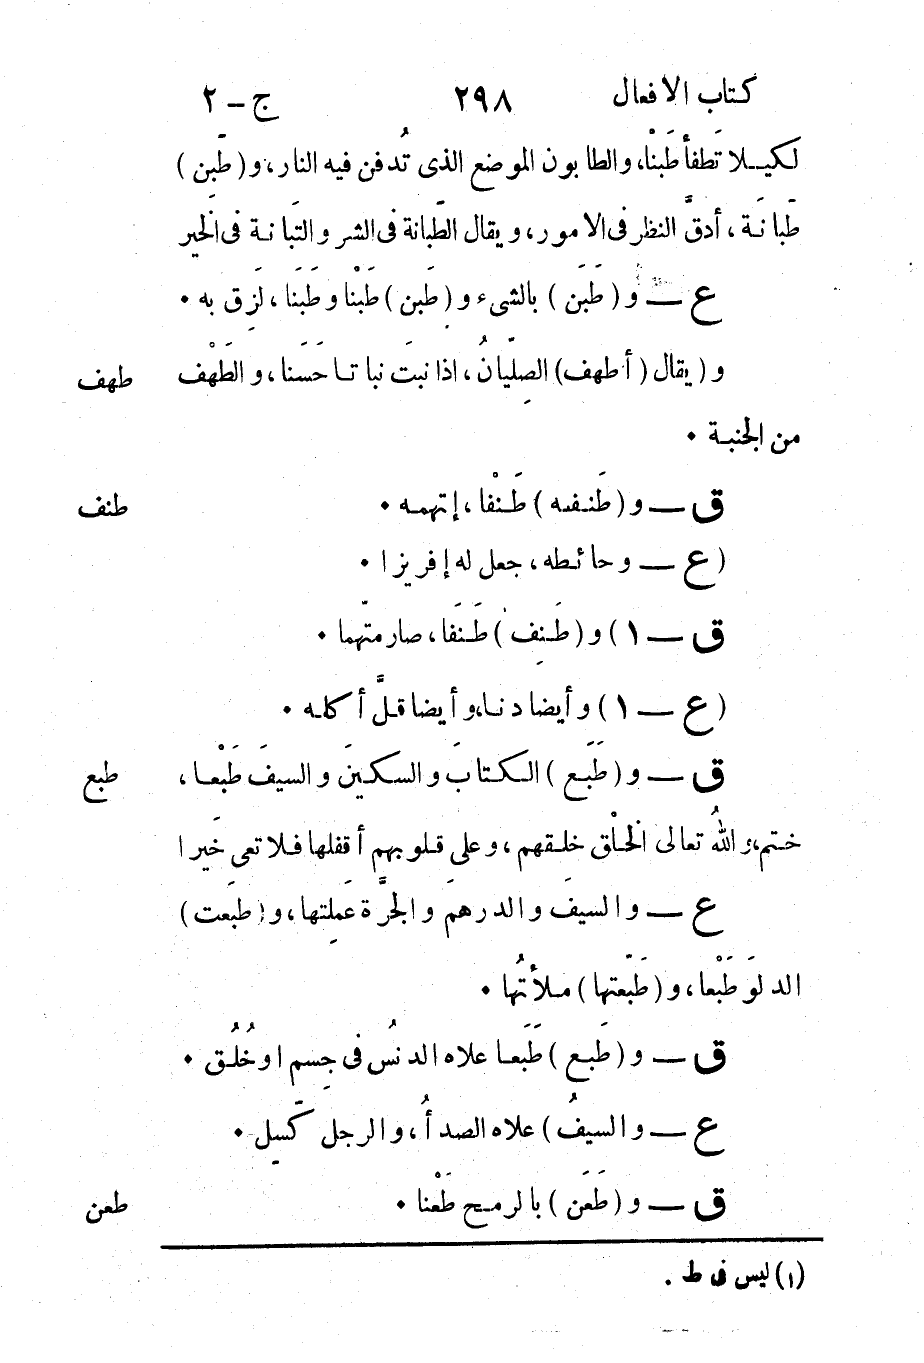 كتاب الافعال ٢٩٨ ج - ٢
لكيلا تَطفأ طَبْنا، والطابون الموضع الذى تُدفن فيه النار، و (طَّبِن)
طَّبانَة، أدقَّ النظر فى الامور، ويقال الطّبانة فى الشر والتَبانة فى الخير
ع — و (طَبَن) بالشىء و (طَبِن) طَبْنا وطَبَنَا، لَزِق به .
و (يقال (أطهف) الصِلّيانُ، اذا نبتَ نباتا حَسَنا، والطَهْف طهف
من الجنبة .
ق — و (طَنفه) طَنْفا، إتهمه . طنف
(ع — وحائطه، جعل له إفريزا .
ق — ١) و (طَنِف) طَنَفَا، صار متّهما .
(ع — ١) وأيضا دنا، وأيضا قلَّ أكله .
ق — و (طَبَع) الكتابَ والسكينَ والسيفَ طَبْعا، طبع
ختم، واللهُ تعالى الخلْق خلقهم، وعلى قلوبهم أقفلها فلا تعى خَيرا
ع — والسيفَ والدرهمَ والجرَّةَ عَمِلتها، و (طبَعت)
الدلوَ طَبْعا، و (طَبّعتها) ملأتُها .
ق — و (طَبِع) طَبَعَا علاه الدنسُ فى جِسم او خُلُق .
ع — والسيفُ) علاه الصدأُ، والرجل كَسِل .
ق — و (طَعَن) بالرمح طَعْنا . طعن
(١) ليس فى ط .